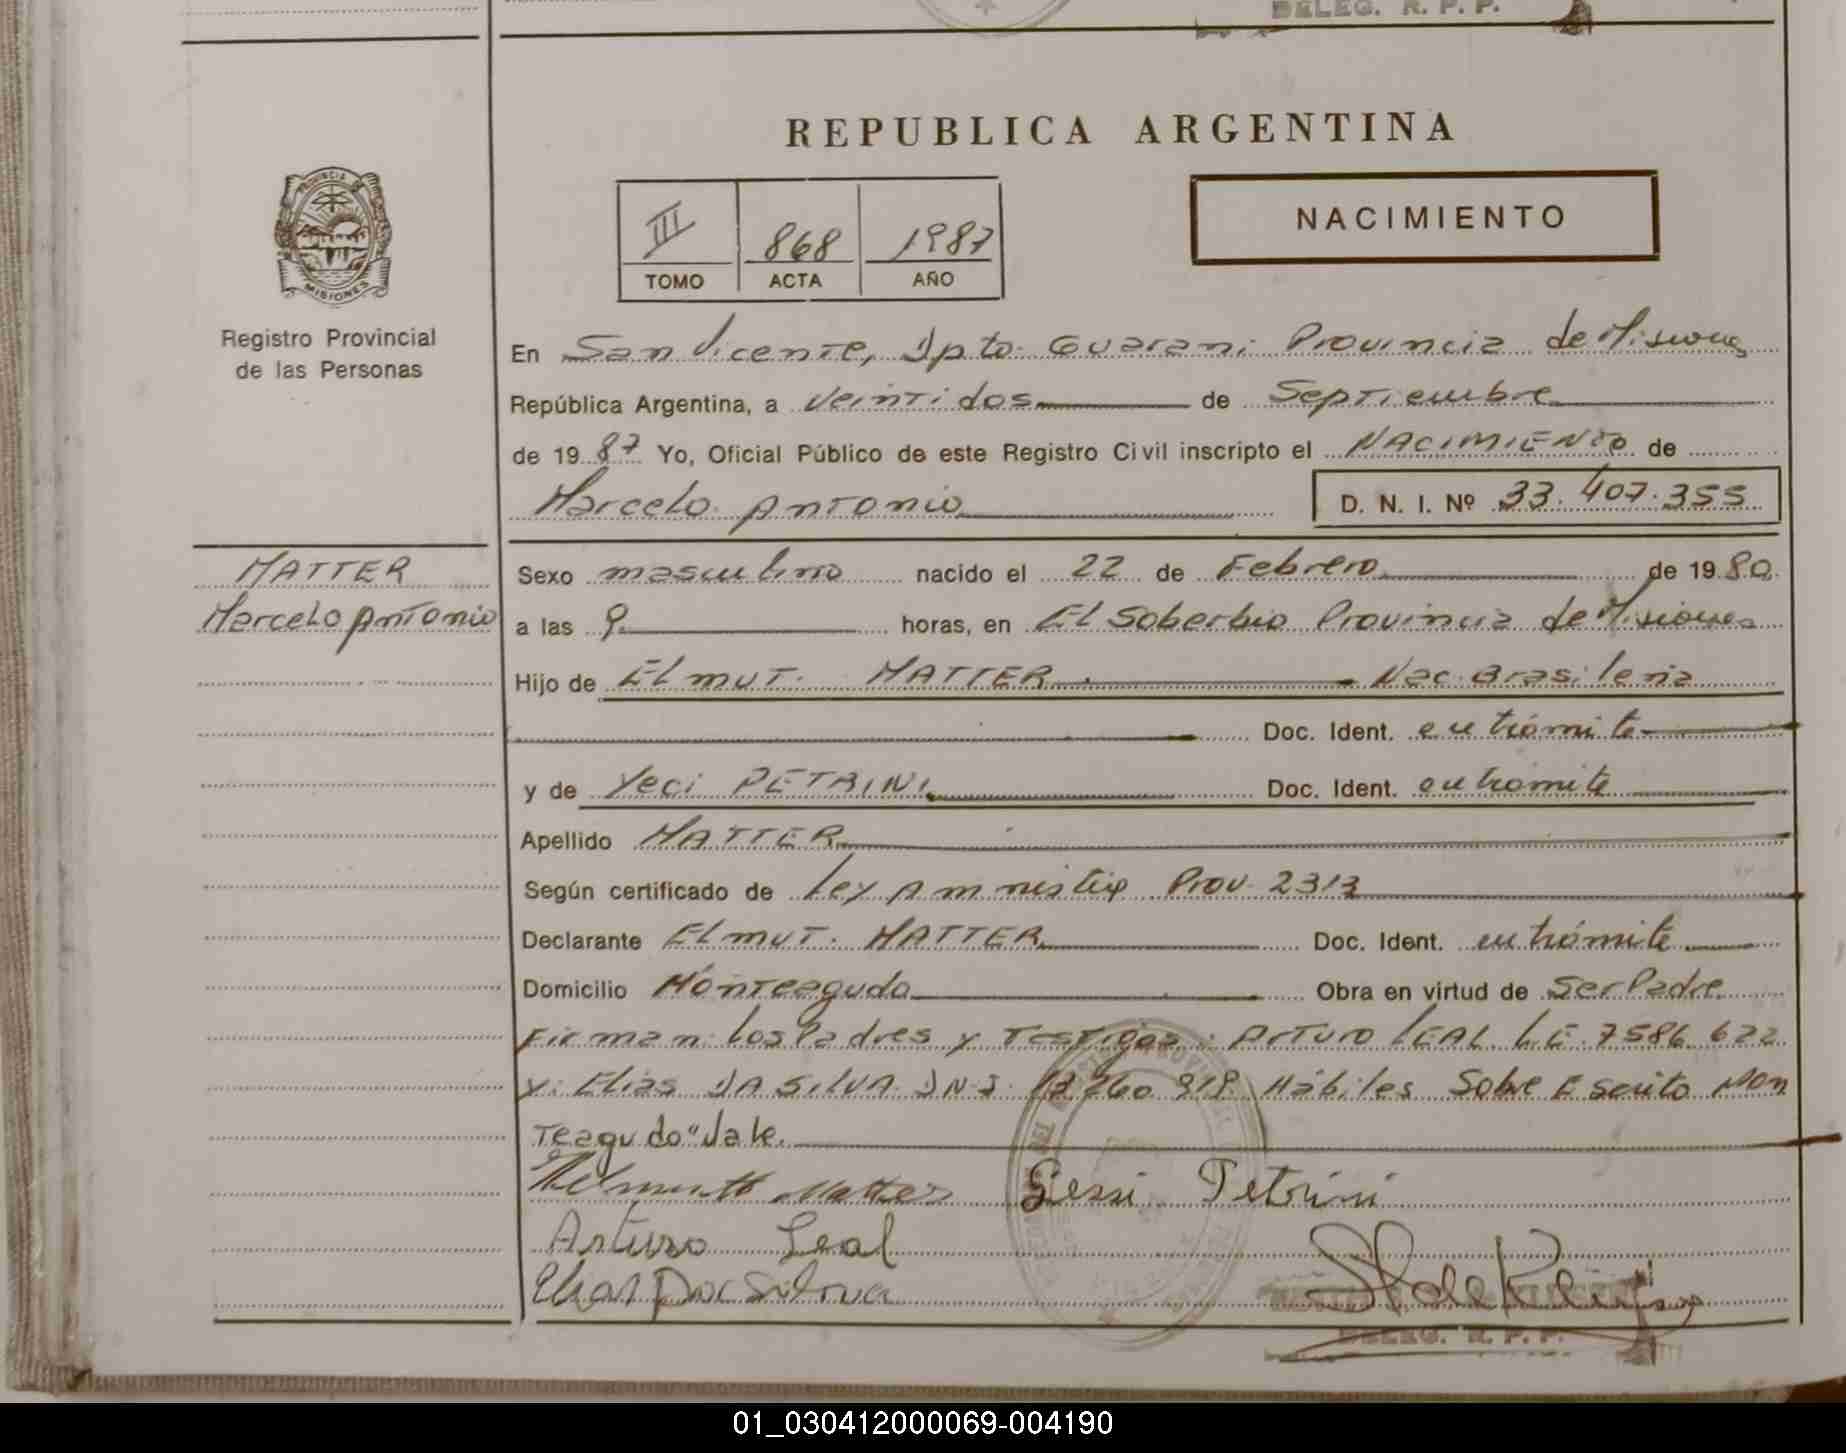 DELEG. R. P. P.
REPUBLICA ARGENTINA
PROVINCIA
MISIONES
III 868 1987
TOMO ACTA AÑO
NACIMIENTO
Registro Provincial
de las Personas
En San Vicente, Dpto. Guarani Provincia de Misiones
República Argentina, a veintidos de Septiembre
de 1987 Yo, Oficial Público de este Registro Civil inscripto el NACIMIENTO de
Marcelo Antonio D. N. I. Nº 33.407.355
MATTER
Marcelo Antonio
Sexo masculino nacido el 22 de Febrero de 1980
a las 9 horas, en El Soberbio Provincia de Misiones
Hijo de Elmut. MATTER Nac. Brasileña
Doc. Ident. en trámite
y de Yeci PETRINI Doc. Ident. en trámite
Apellido MATTER
Según certificado de Ley Amnistia Prov. 2313
Declarante Elmut. MATTER Doc. Ident. en trámite
Domicilio Monteagudo Obra en virtud de Ser Padre
Firman: los Padres y Testigos: Arturo LEAL L.E. 7586 622
y: Elias DA SILVA D.N.I. 13 260 919 Hábiles Sobre Escrito Mon
Teagudo" Vale.
Helmuth Matter Giessi Petrini
Arturo Leal
Elias Da Silva
DELEG. R. P. P.
01_030412000069-004190